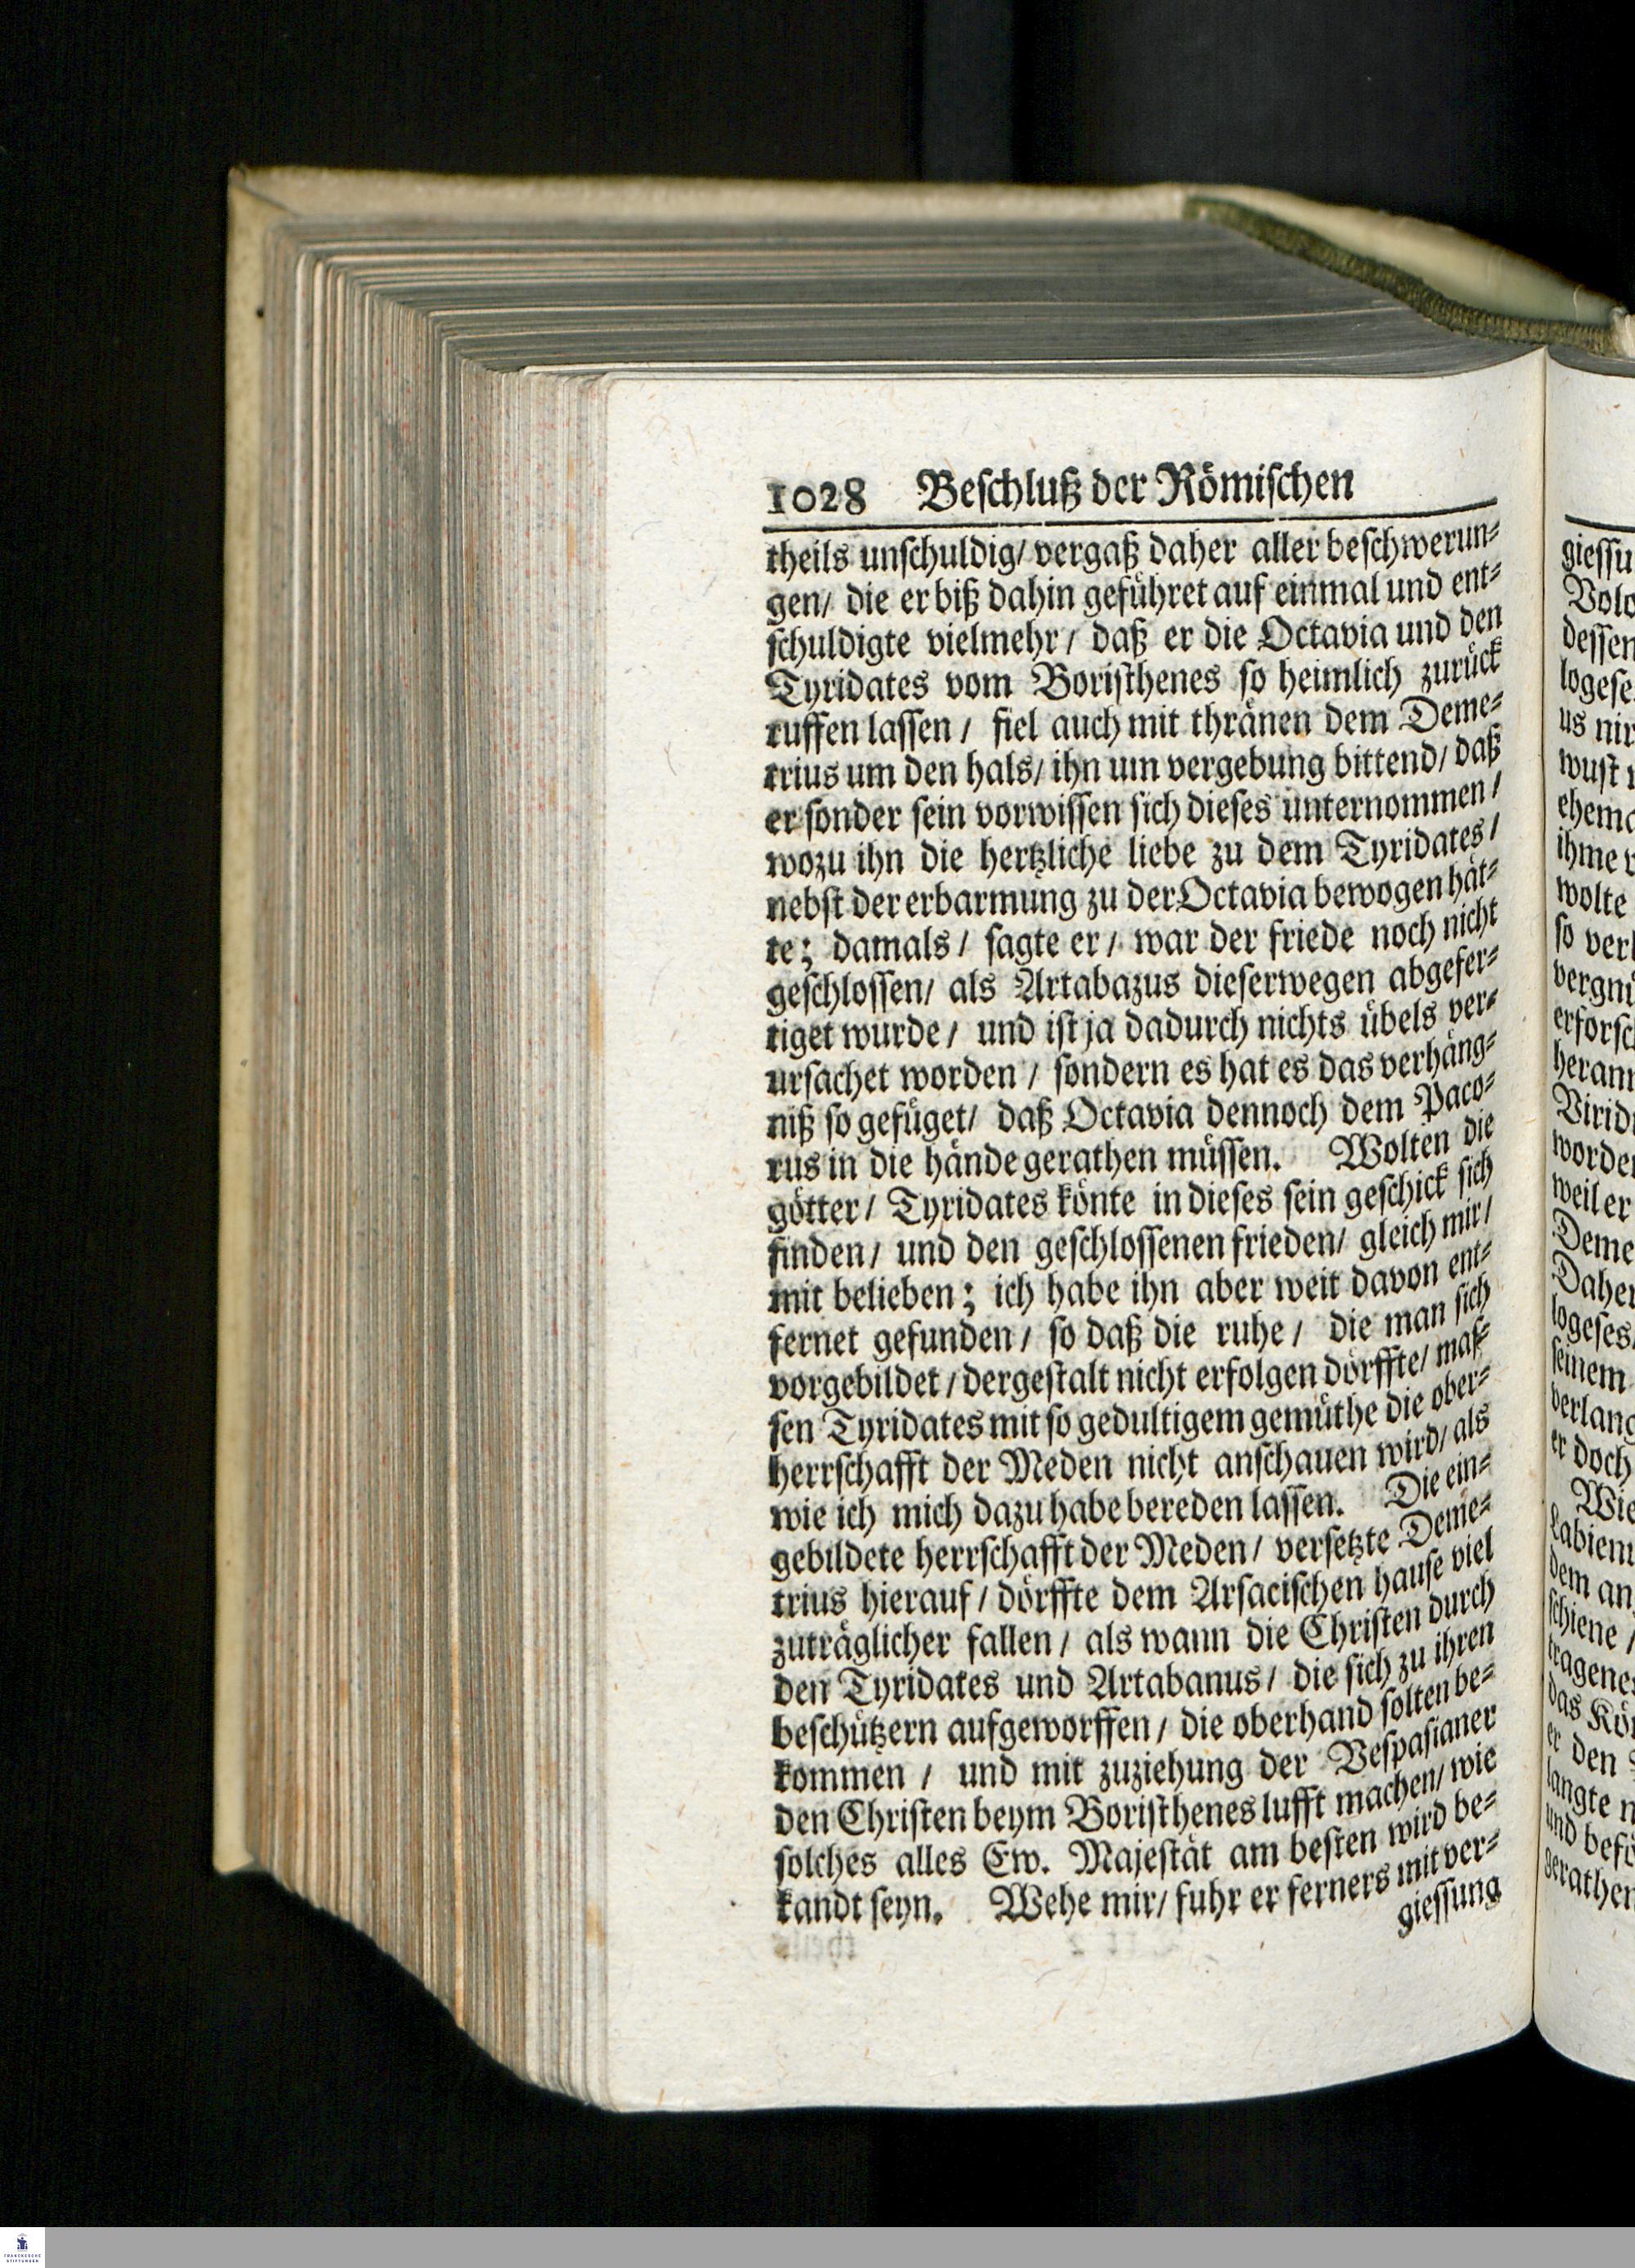 1028 Beſchluß der Römiſchen
theils unſchuldig/ vergaß daher aller beſchwerun⸗
gen/ die er biß dahin geführet auf einmal und ent⸗
ſchuldigte vielmehr/ daß er die Octavia und den
Tyridates vom Boriſthenes ſo heimlich zurück
ruffen laſſen/ fiel auch mit thränen dem Deme⸗
trius um den hals/ ihn um vergebung bittend/ daß
er ſonder ſein vorwiſſen ſich dieſes unternommen/
wozu ihn die hertzliche liebe zu dem Tyridates/
nebſt der erbarmung zu der Octavia bewogen hät⸗
te; damals/ ſagte er/ war der friede noch nicht
geſchloſſen/ als Artabazus dieſerwegen abgefer⸗
tiget wurde/ und iſt ja dadurch nichts übels ver⸗
urſachet worden/ ſondern es hat es das verhäng⸗
niß ſo gefüget/ daß Octavia dennoch dem Paco⸗
rus in die hände gerathen müſſen. Wolten die
götter/ Tyridates könte in dieſes ſein geſchick ſich
finden/ und den geſchloſſenen frieden/ gleich mir/
mit belieben; ich habe ihn aber weit davon ent⸗
fernet gefunden/ ſo daß die ruhe/ die man ſich
vorgebildet/ dergeſtalt nicht erfolgen dörffte/ maſ⸗
ſen Tyridates mit ſo gedultigem gemüthe die ober⸗
herrſchafft der Meden nicht anſchauen wird/ als
wie ich mich dazu habe bereden laſſen. Die ein⸗
gebildete herrſchafft der Meden/ verſetzte Deme⸗
trius hierauf/ dörffte dem Arſaciſchen hauſe viel
zuträglicher fallen/ als wann die Chriſten durch
den Tyridates und Artabanus/ die ſich zu ihren
beſchützern aufgeworffen/ die oberhand ſolten be⸗
kommen/ und mit zuziehung der Veſpaſianer
den Chriſten beym Boriſthenes lufft machen/ wie
ſolches alles Ew. Majeſtät am beſten wird be⸗
kandt ſeyn. Wehe mir/ fuhr er ferners mit ver⸗
gieſſung
gieſſu
Volo
deſſen
logeſe
us nir
wuſt
ehema
ihme
wolte
ſo ver
vergnü
erforſc
herann
Virid
worde
weil er
Deme
Daher
logeſes
ſeinem
verlang
er doch
Wie
Labienu
dem an
ſchiene/
tragene
das Kö
er den
langte
und befö
gerathen